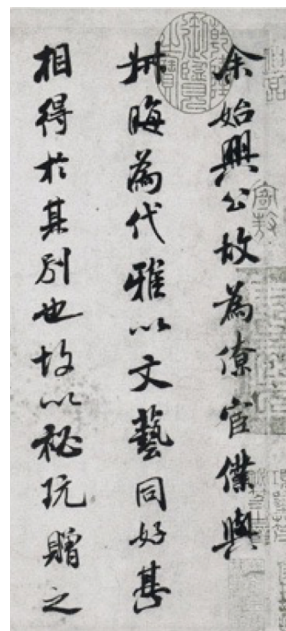 余始興公故為僚宦僕與
叔晦為代雅以文藝同好甚
相得於其別也故以祕玩贈之
乾隆御覽之寶